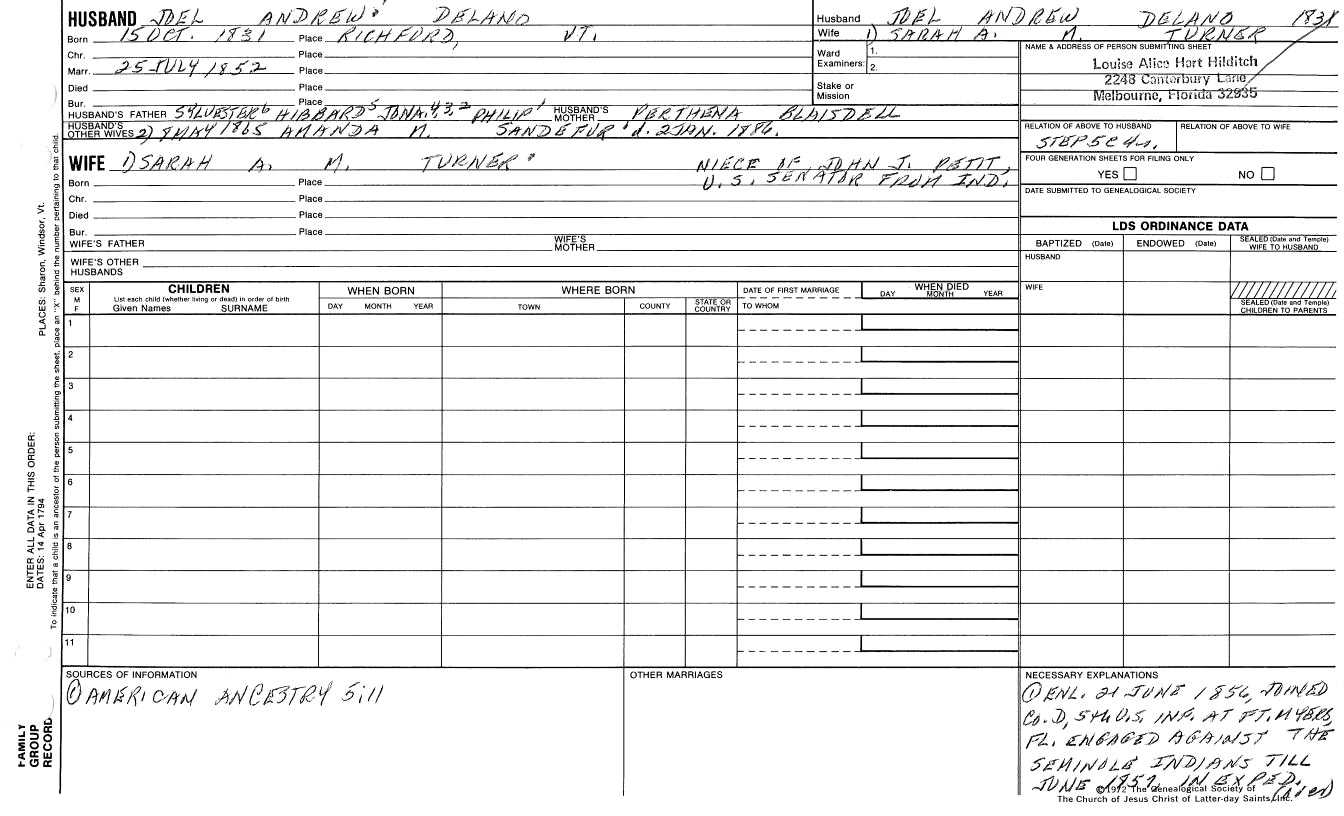 HUSBAND JOEL ANDREW DELANO
Born 15 OCT. 1831 Place RICHFORD, VT.
Chr. Place
Marr. 25 JULY 1852 Place
Died Place
Bur. Place
HUSBAND'S FATHER SYLVESTER6 HIBBARD5 JONA.4,3,2 PHILIP1 HUSBAND'S MOTHER PERTHENA BLAISDELL
HUSBAND'S OTHER WIVES 2) 8 MAY 1865 AMANDA M. SANDEFUR d. 2 JAN. 1886.
WIFE 1) SARAH A. M. TURNER NIECE OF JOHN J. PETIT,
U.S. SENATOR FROM IND.
Born Place
Chr. Place
Died Place
Bur. Place
WIFE'S FATHER WIFE'S MOTHER
WIFE'S OTHER HUSBANDS
Husband JOEL ANDREW DELANO 1831
Wife 1) SARAH A. M. TURNER
Ward Examiners: 1.
2.
Stake or Mission
NAME & ADDRESS OF PERSON SUBMITTING SHEET
Louise Alice Hart Hilditch
2248 Canterbury Lane
Melbourne, Florida 32935
RELATION OF ABOVE TO HUSBAND RELATION OF ABOVE TO WIFE
STEP 5C4R.
FOUR GENERATION SHEETS FOR FILING ONLY
YES NO
DATE SUBMITTED TO GENEALOGICAL SOCIETY
LDS ORDINANCE DATA
BAPTIZED (Date) ENDOWED (Date) SEALED (Date and Temple) WIFE TO HUSBAND
HUSBAND
WIFE
SEALED (Date and Temple) CHILDREN TO PARENTS
SEX M F CHILDREN WHEN BORN WHERE BORN DATE OF FIRST MARRIAGE WHEN DIED
List each child (whether living or dead) in order of birth
Given Names SURNAME DAY MONTH YEAR TOWN COUNTY STATE OR COUNTRY TO WHOM DAY MONTH YEAR
1
2
3
4
5
6
7
8
9
10
11
SOURCES OF INFORMATION
① AMERICAN ANCESTRY 5:11
OTHER MARRIAGES
NECESSARY EXPLANATIONS
① ENL. 21 JUNE 1856, JOINED
Co. D, 5th U.S. INF. AT FT. MYERS,
FL. ENGAGED AGAINST THE
SEMINOLE INDIANS TILL
JUNE 1857. IN EXPED.
(over)
©1972 The Genealogical Society of
The Church of Jesus Christ of Latter-day Saints, Inc.
PLACES: Sharon, Windsor, Vt.
ENTER ALL DATA IN THIS ORDER:
DATES: 14 Apr 1794
To indicate that a child is an ancestor of the person submitting the sheet, place an "X" behind the number pertaining to that child.
FAMILY
GROUP
RECORD